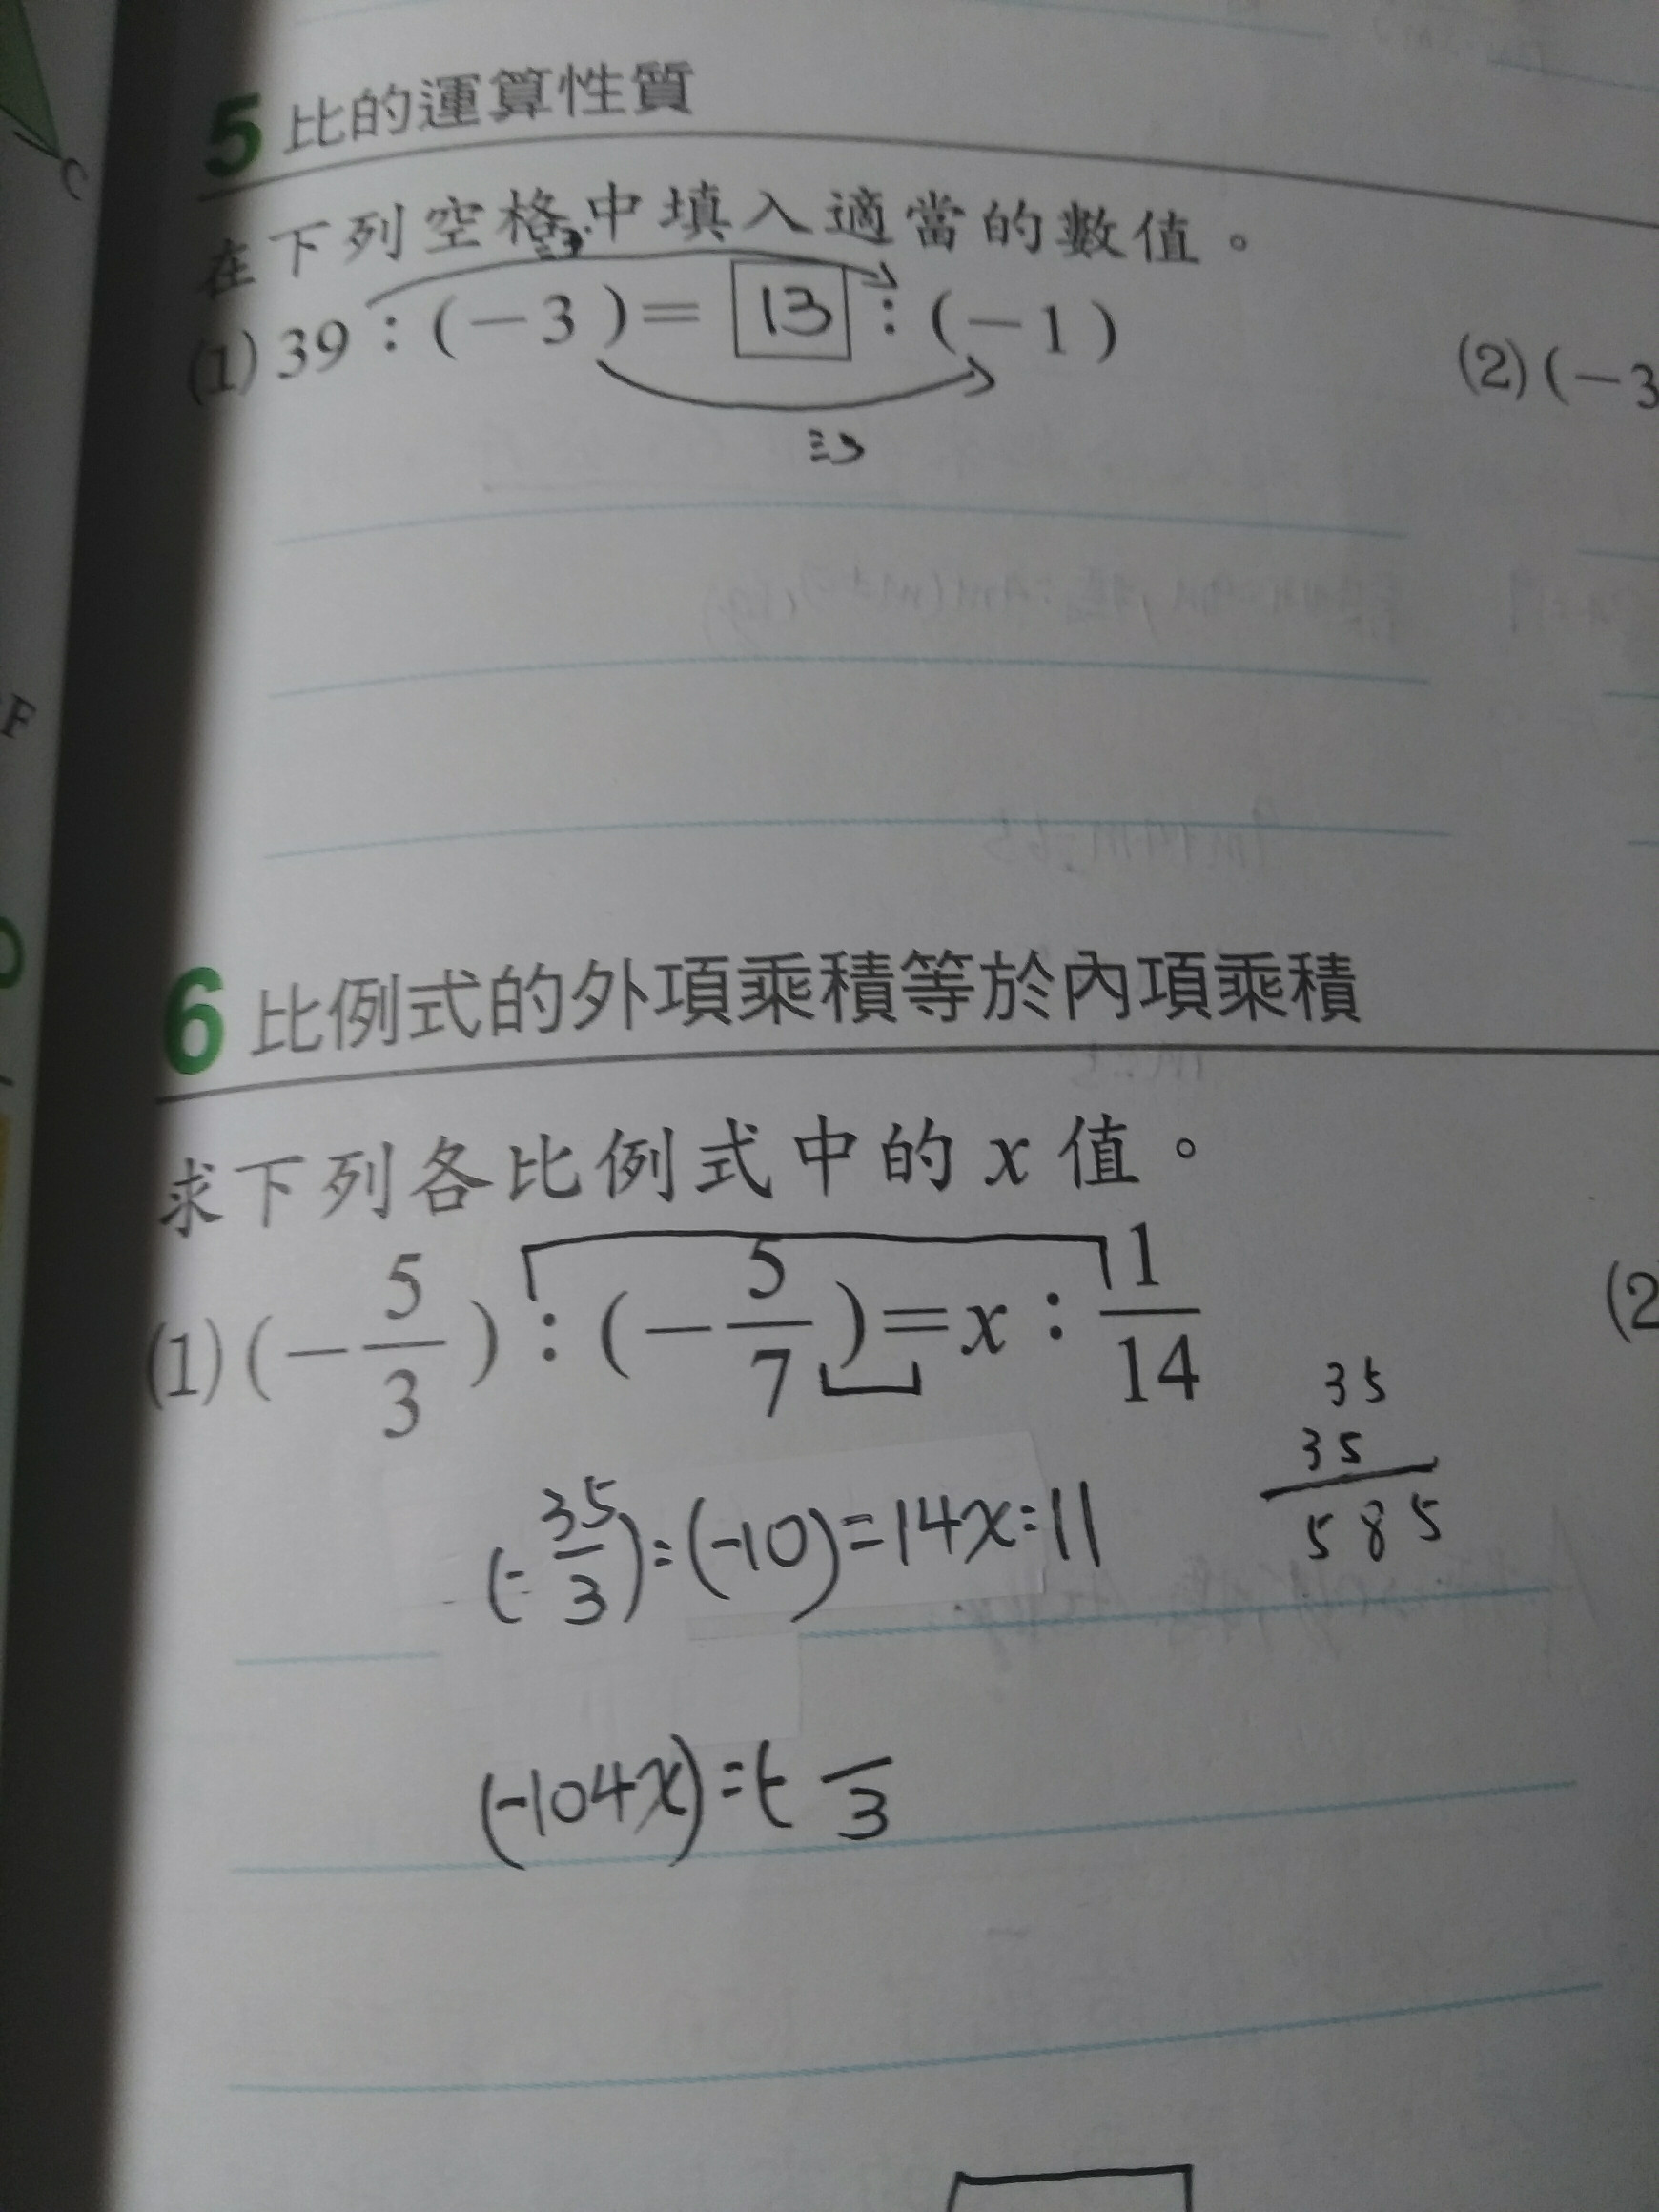 C
5 比的運算性質
在下列空格中填入適當的數值。
÷3
(1) 39:(-3)= 13 :(-1)
÷3
(2)(-3
F
6 比例式的外項乘積等於內項乘積
求下列各比例式中的 x 值。
(1)(-5/3):(-5/7)=x:1/14
(2
35
35
585
(-35/3):(-10)=14x:11
(-104x)=(- /3